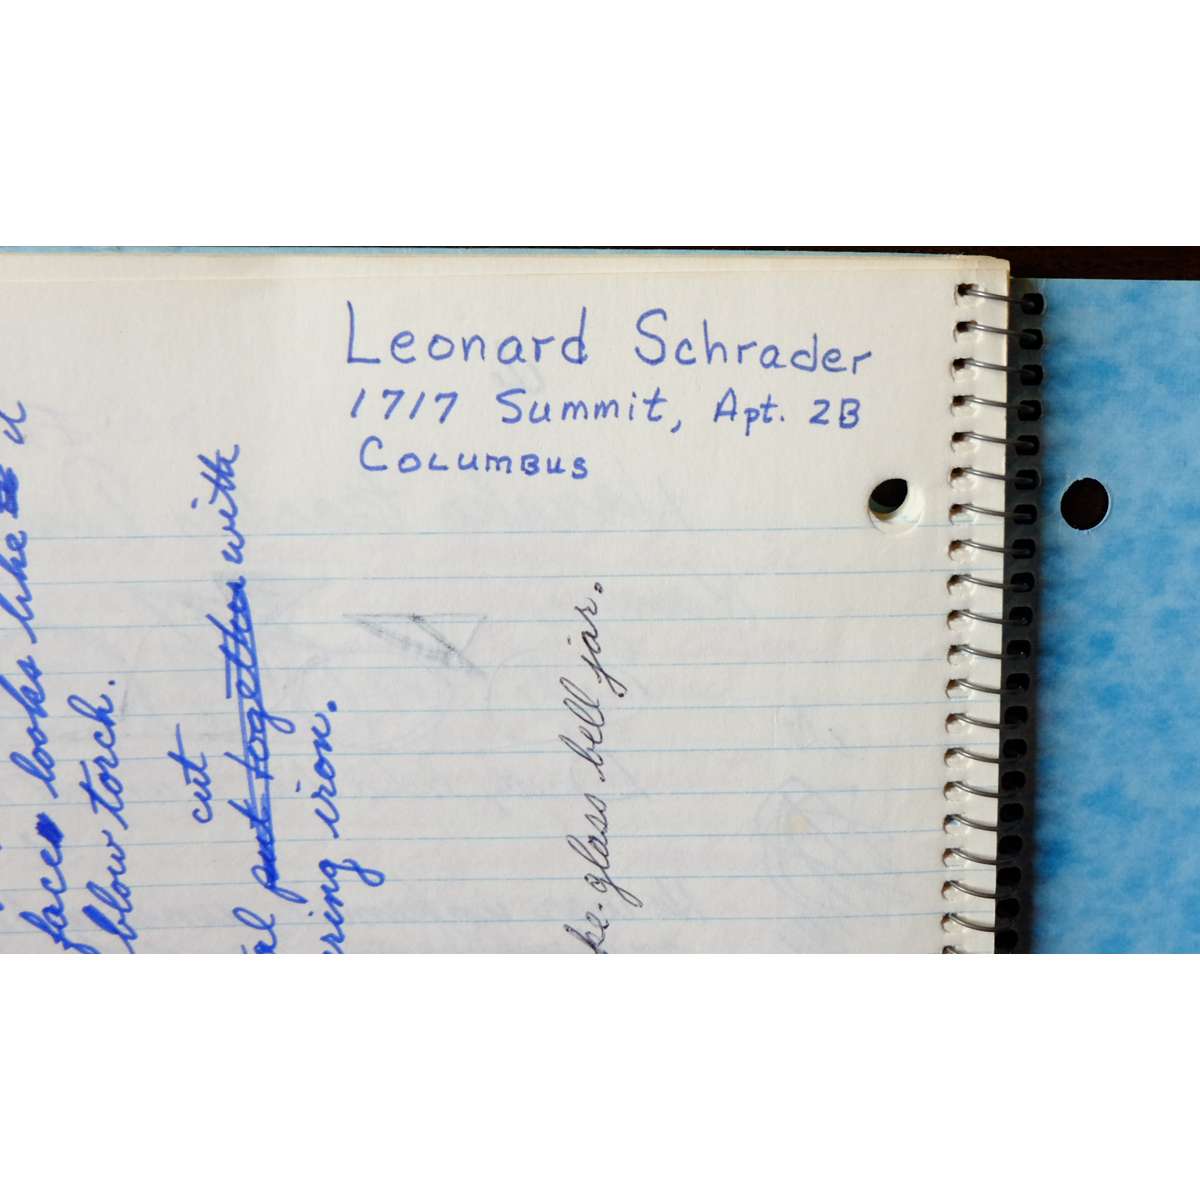 Leonard Schrader
1717 Summit, Apt. 2B
COLUMBUS
looks like
blow torch.
cut
put together with
iron.
glass bell jar.